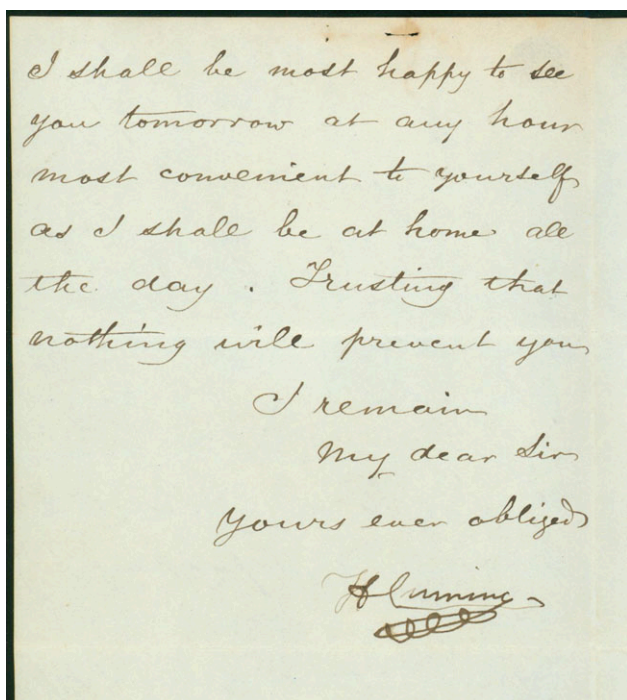 I shall be most happy to see
you tomorrow at any hour
most convenient to yourself
as I shall be at home all
the day . Trusting that
nothing will prevent you
I remain
My dear Sir
Yours ever obliged
H Cuming